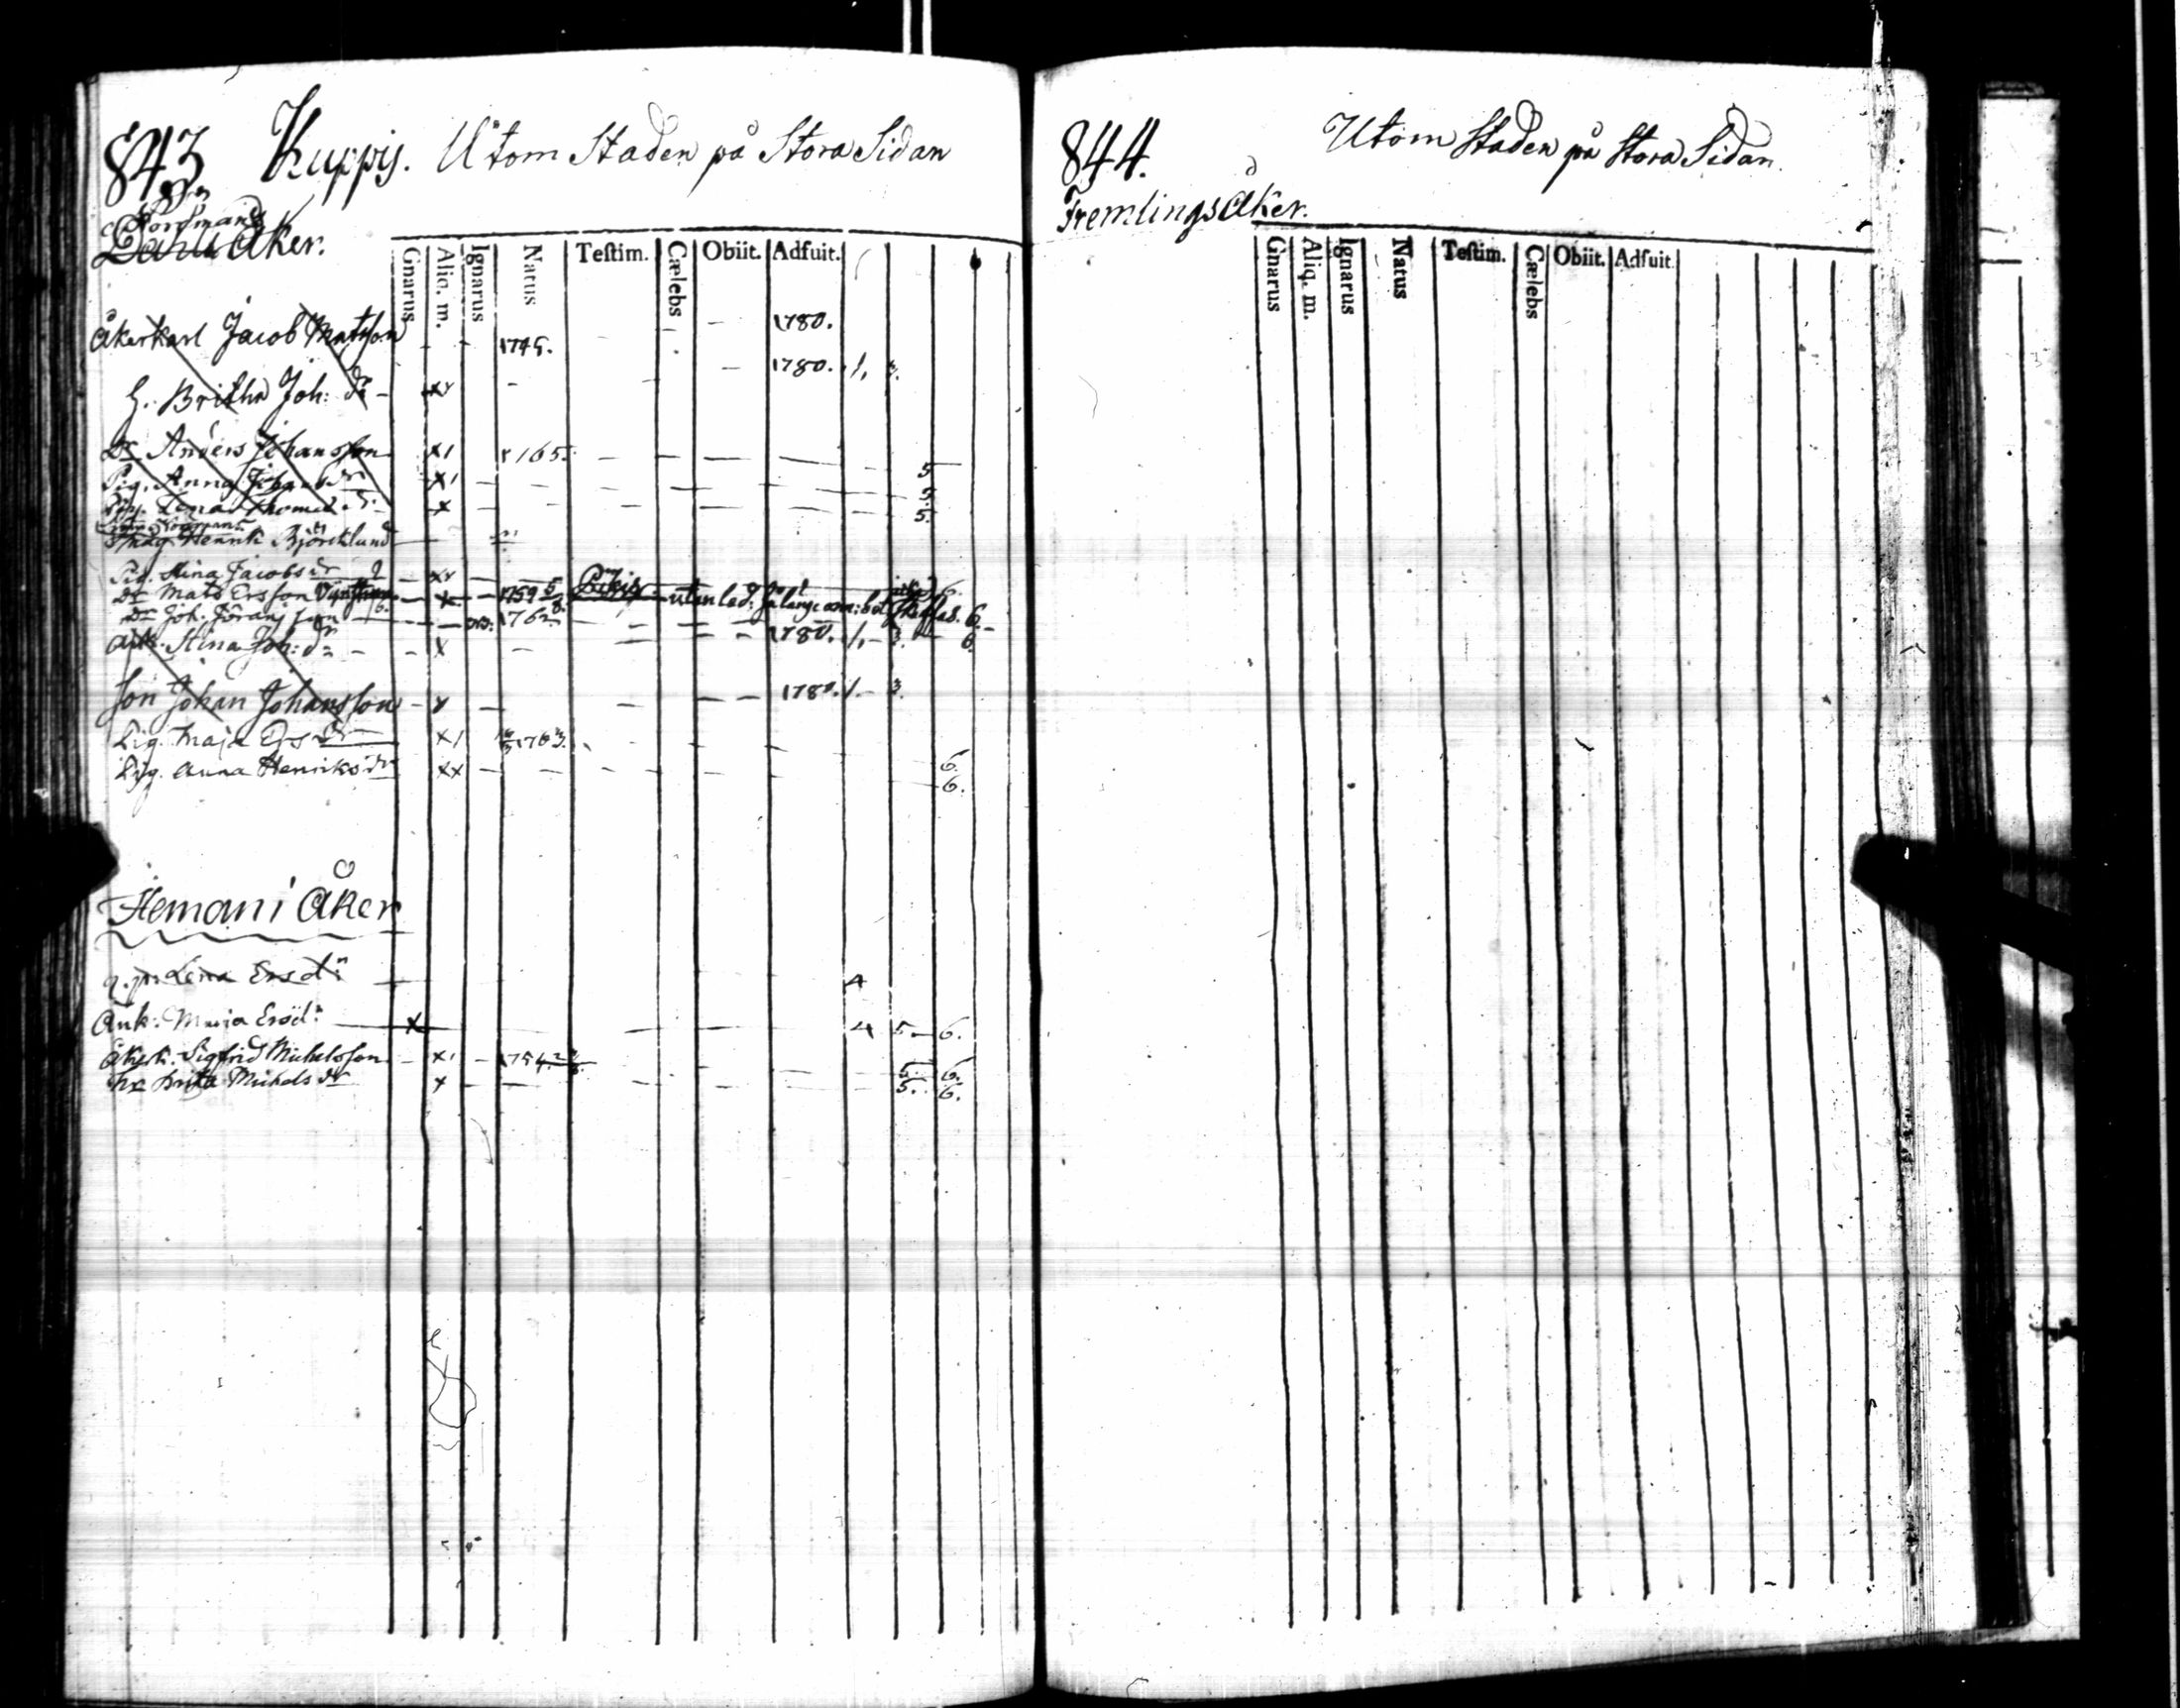 843. Kuppis. Utom Staden på Stora Sidan
Nordmans
Åker.
Gnarus Aliq. m. Ignarus Natus Testim. Cælebs Obiit. Adfuit.
Åkerkarl Jacob Mattsson - - 1745. - - - 1780.
H. Britha Joh: dr - xx - - - - 1780. 1. 3.
Dr Anders Johansson x1 1765. - - - - 5
Pig. Anna Johans dr x1 - - - - - 5.
Pig. Lena Thomæ dr x - - - - - 5.
Henrik Björcklund
Pig. Stina Jacobs dr xx - - 6.
Dr Mats Ersson x - 1759 5/8. utan led:
Dr Joh. Göransson - 1762. 6.
Enk. Stina Joh: dr - - x - - - - 1780. 1. - 3. - 6
son Johan Johansson - x - - - - 1780. 1. - 3.
Pig. Maja Ers dr x1 1763.
Pig. Anna Henriks dr xx - - - - - 6.
6.
Hemani Åker
Lena Ersdr 4
Enk: Maria Ersdr x - - - 4 5. 6.
Åkerk. Sigfrid Michelsson - x1 - 1754. - - - 5. 6.
hr Brita Michels dr x - - - - - 5. 6.
844. Utom Staden på Stora Sidan.
Fremlings Åker.
Gnarus Aliq. m. Ignarus Natus Testim. Cælebs Obiit. Adfuit